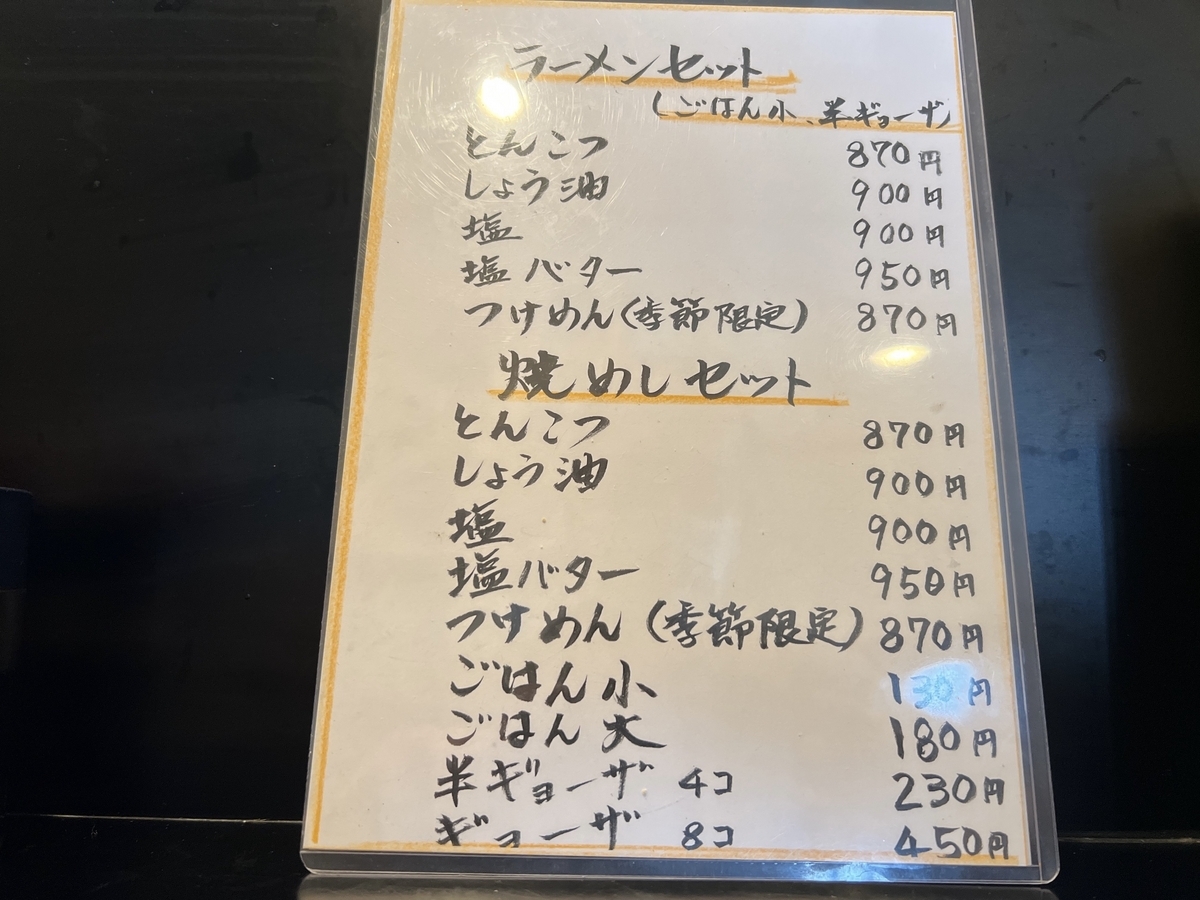 ラーメンセット
(ごはん小、半ギョーザ)
とんこつ 870円
しょう油 900円
塩 900円
塩バター 950円
つけめん(季節限定) 870円
焼めしセット
とんこつ 870円
しょう油 900円
塩 900円
塩バター 950円
つけめん(季節限定) 870円
ごはん小 130円
ごはん大 180円
半ギョーザ 4コ 230円
ギョーザ 8コ 450円